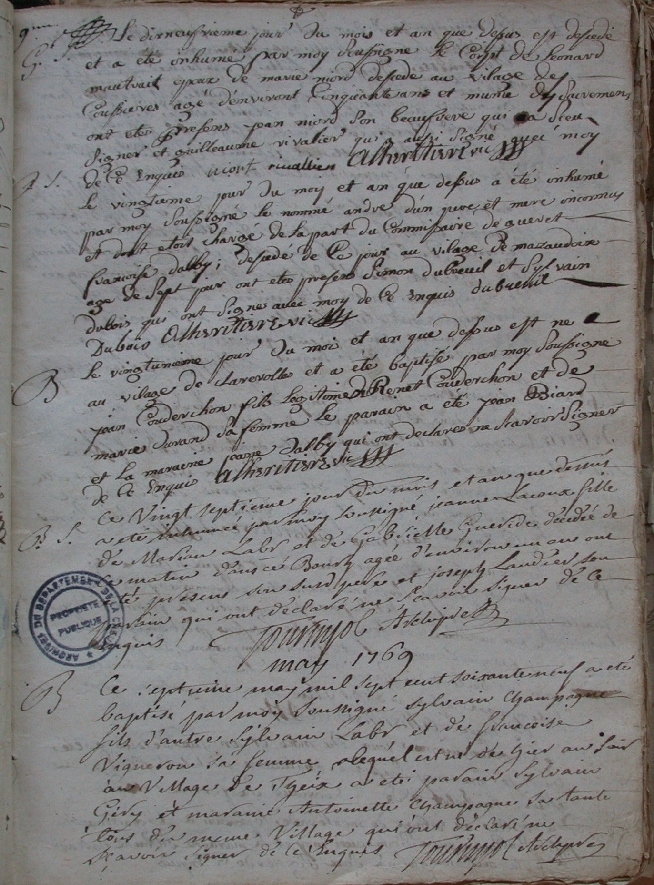 Le dixneufvieme jour du mois et an que desus est decedé
et a ete inhumé par moy soussigné le corps de Leonard
mautrait epoux de marie niord decedé au vilage des
Coussieres agé d'environt cinquante ans et munie des sacremens
ont etes presens jean niord son beaufrere qui a sceu
signer et guilleaume rivalier qui a aussi signé avec moy
de ce enquis niort rivallier
G. S.
Le vingtieme jour du moy et an que dessus a été inhumé
par moy soussigné le nommé andré d'un pere et mere inconnus
et dont etoit chargé de la part du Commissaire de gueret
francoise dalby; decedé de ce jour au vilage de mazaudoix
agé de sept jour ont ete presens Simon dubreuil et Sylvain
dubois qui ont signé avec moy de ce enquis dubreuil
Dubois
B
Le vingtunieme jour du moi et an que dessus est ne
au vilage de clarevolle et a ete baptisé par moy soussigné
jean Couderchon fils legitime de Renet Couderchon et de
marie durand sa femme le parain a ete jean Biard
et la maraine jeane dalby qui ont declares ne scavoir signer
de ce enquis
S.
Ce vingt septieme jour du mois et an que dessus
a eté inhumee par moy soussigné jeanne Lacoux fille
de Marian Labr et de Gabrielle Queride decédée de
ce matin dans ce Bourg agée d'environ un an ont
eté presens son susd pere et joseph Landier son
parain qui ont déclaré ne scavoir signer de ce
enquis Tourniol Archiprê
may 1769
B
Ce septieme may mil sept cent soixante neuf a eté
baptisé par moy soussigné Sylvain Champagne
fils d'autre Sylvain Labr et de francoise
Vigneron sa femme lequel est né de hier au soir
au village de Theix a eté parain Sylvain
Gery et maraine Antoinette Champagne sa tante
tous du meme village qui ont déclaré ne
scavoir signer de ce enquis Tourniol Archiprê
ARCHIVES DU DEPARTEMENT DE LA CREUSE
PROPRIÉTÉ
PUBLIQUE